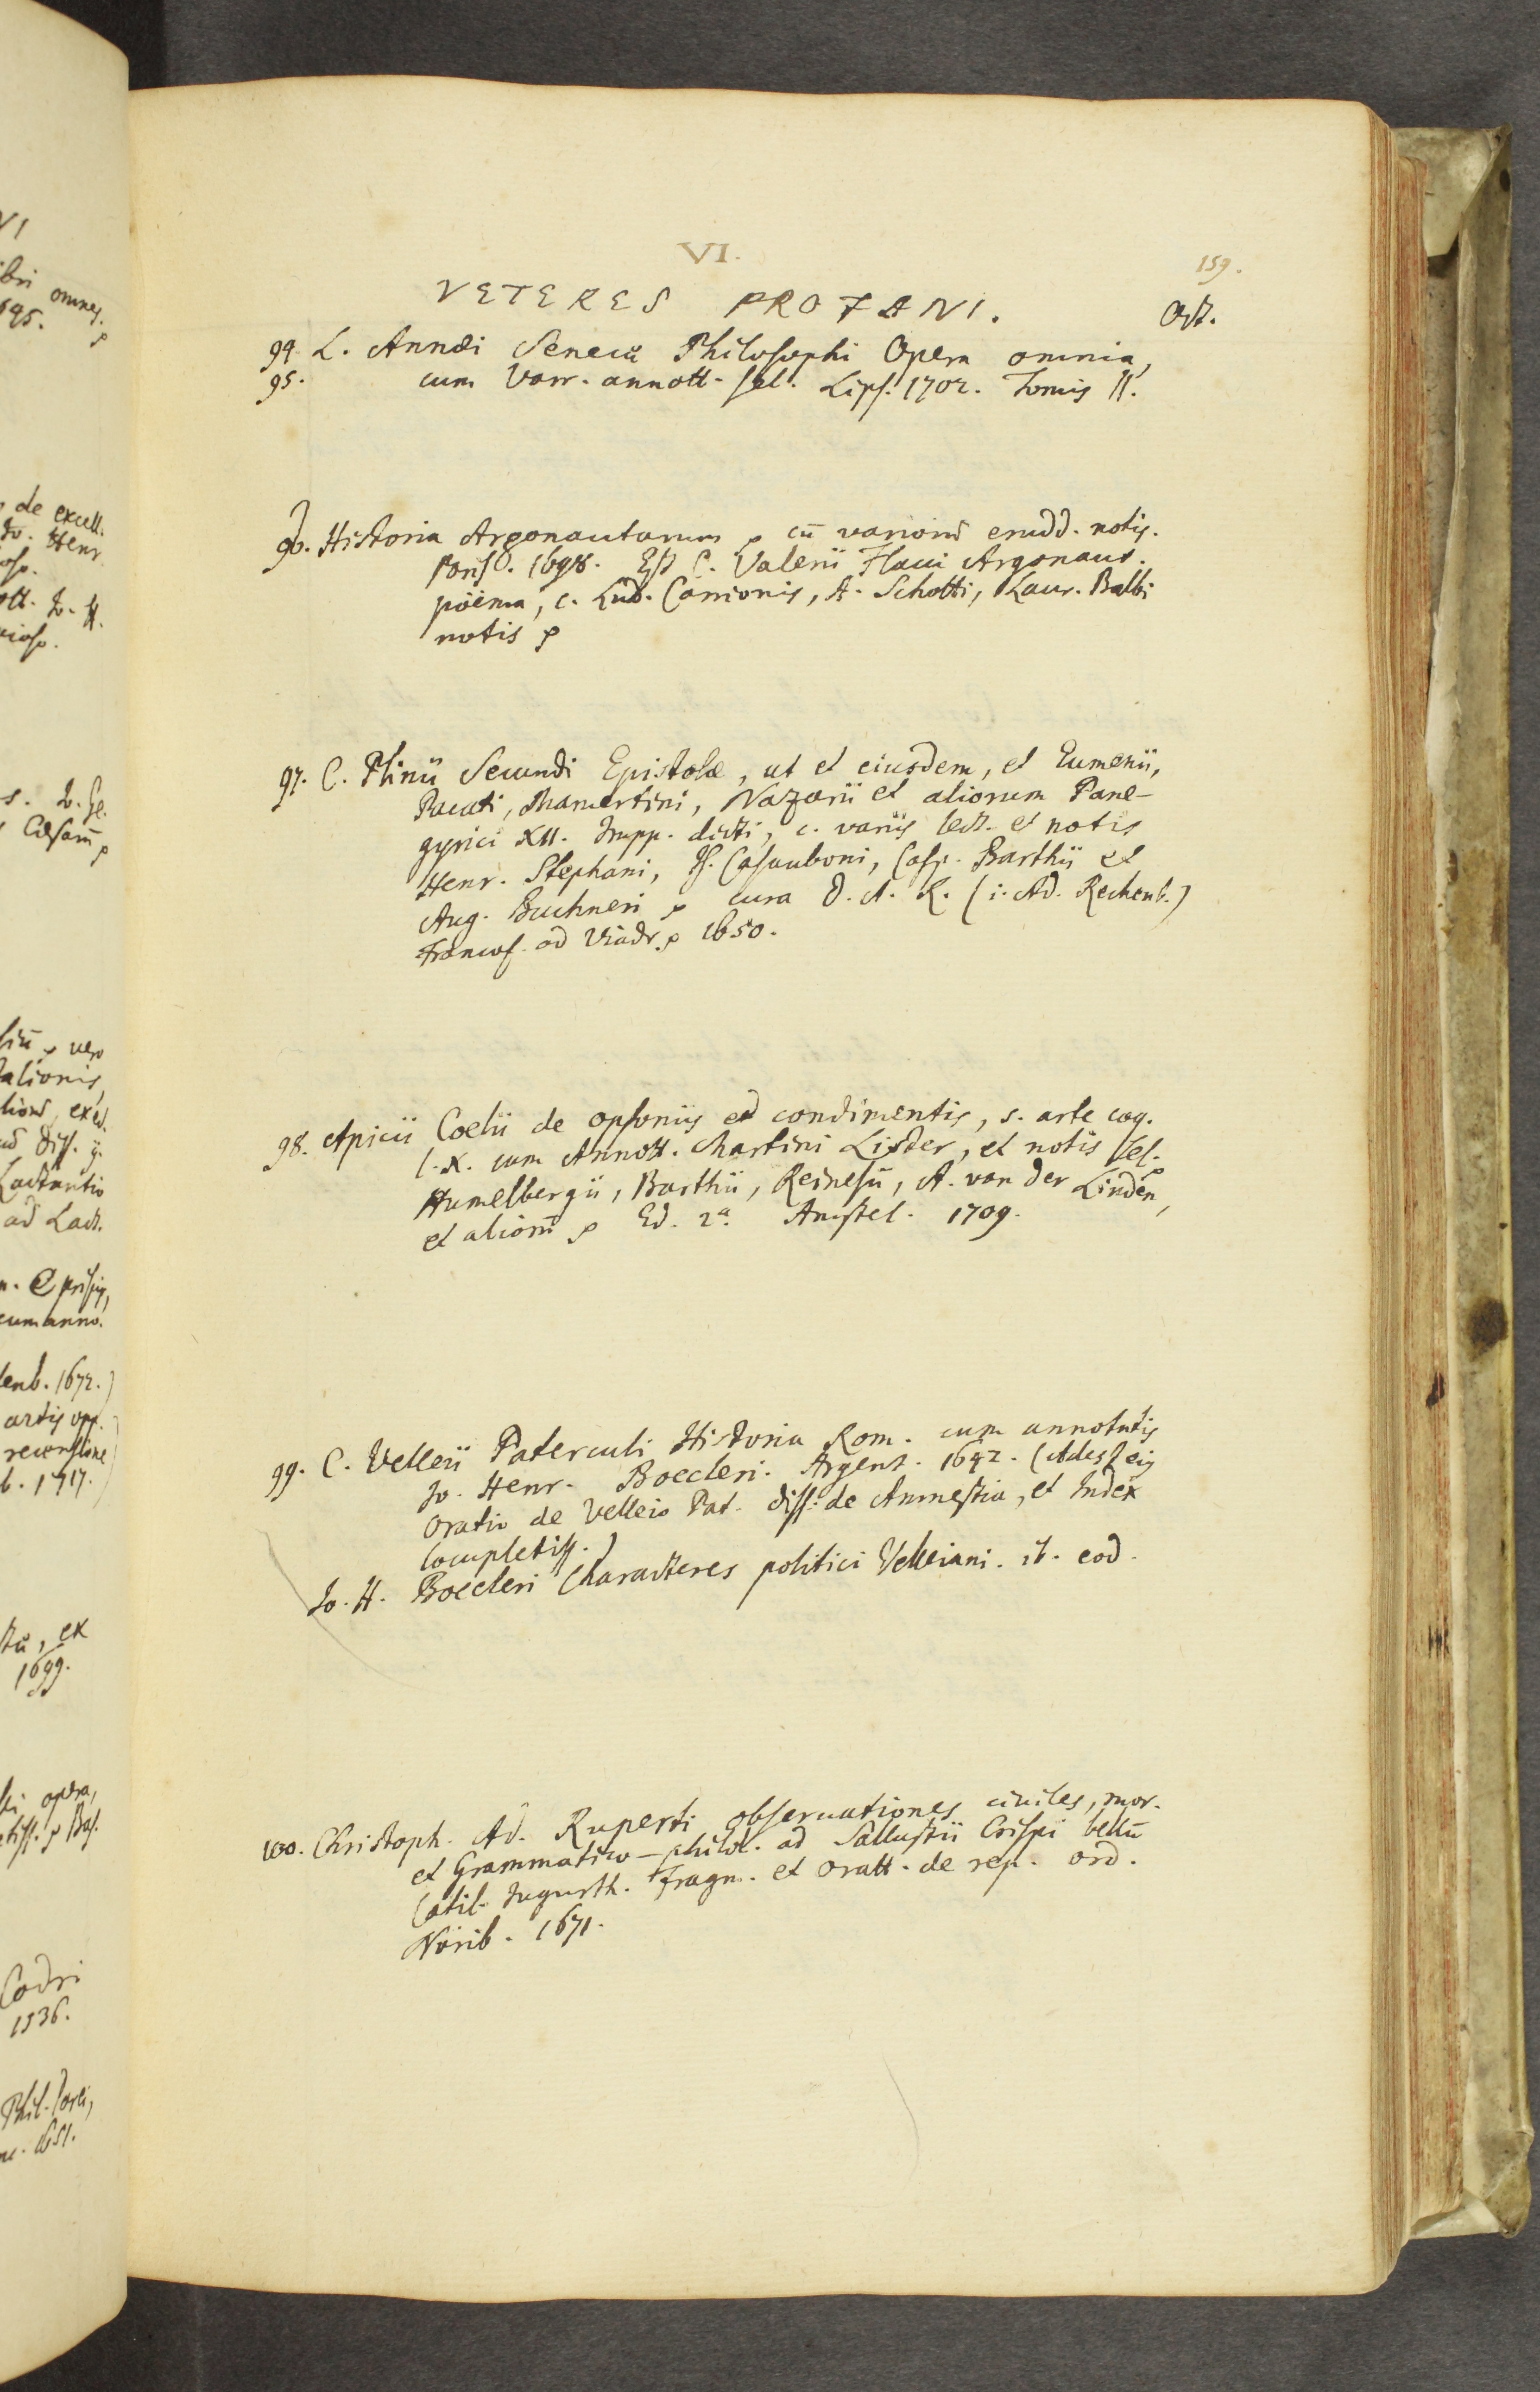 VI.
159.
VETERES PROFANI.
Oct.
94. L. Annæi Senecæ Philosophi Opera omnia,
95. cum Varr. annott. sel. Lips. 1702. Tomis II.
96. Historia Argonautarum cū varior erudd. notis.
1698. Est C. Valerii Flacci Argonaut.
poëma, c. Lud. Carrionis, A. Schotti, Laur. Balbi
notis
97. C. Plinii Secundi Epistolæ, ut et eiusdem, et Eumenii,
Pacati, Mamertini, Nazarii et aliorum Pane-
gyrici XII. Impp. dicti, c. variis lect. et notis
Henr. Stephani, Is. Casauboni, Casp. Barthii et
Aug. Buchneri cura D. A. R. (i. Ad. Rechenb.)
Francof. ad Viadr. 1650.
98. Apicii Coelii de opsoniis et condimentis, s. arte coq.
l. X. cum Annott. Martini Lister, et notis sel.
Humelbergii, Barthii, Reinesii, A. van der Linden,
et aliorū Ed. 2a. Amstel. 1709.
99. C. Velleii Paterculi Historia Rom. cum annotatis
Jo. Henr. Boecleri. Argent. 1642. (Adest eiq
Oratio de Velleio Pat. diss. de Amnestia, et Index
completiss.)
Jo. H. Boecleri Characteres politici Velleiani. ib. eod.
100. Christoph. Ad. Ruperti observationes civiles, mor.
et Grammatico-philol. ad Sallustii Crispi bellū
Catil. Jugurth. Fragm. et Oratt. de rep. ord.
Norib. 1671.